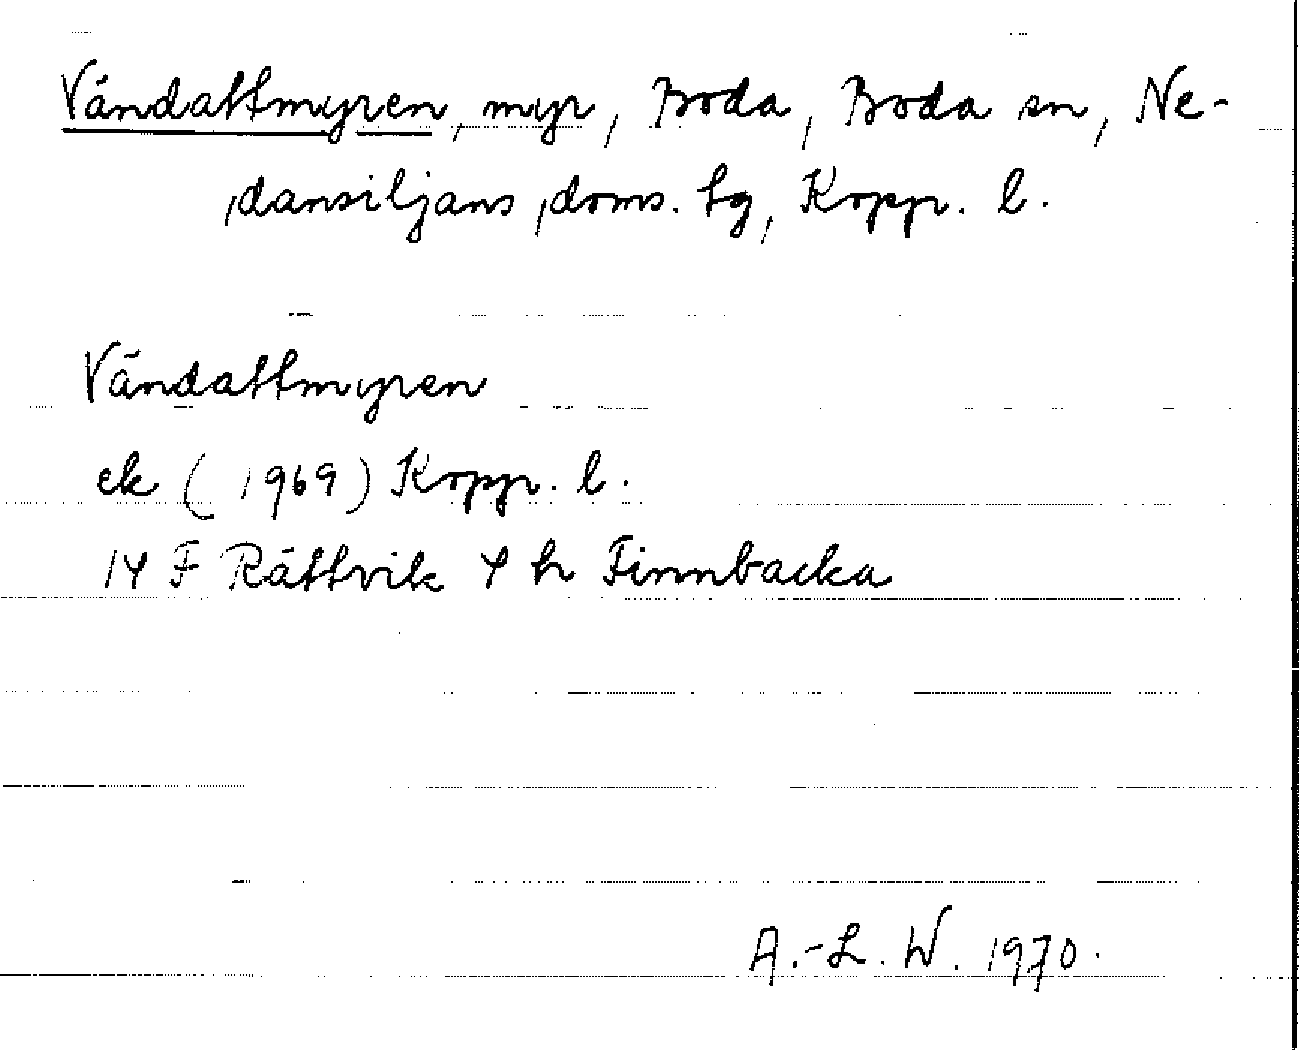 Vändattmyren, myr, Boda, Boda sn, Ne-
dansiljans doms. tg, Kopp. l.
Vändattmyren
ek (1969) Kopp. l.
14 F Rättvik 4 h Finnbacka
A.-L. W. 1970.